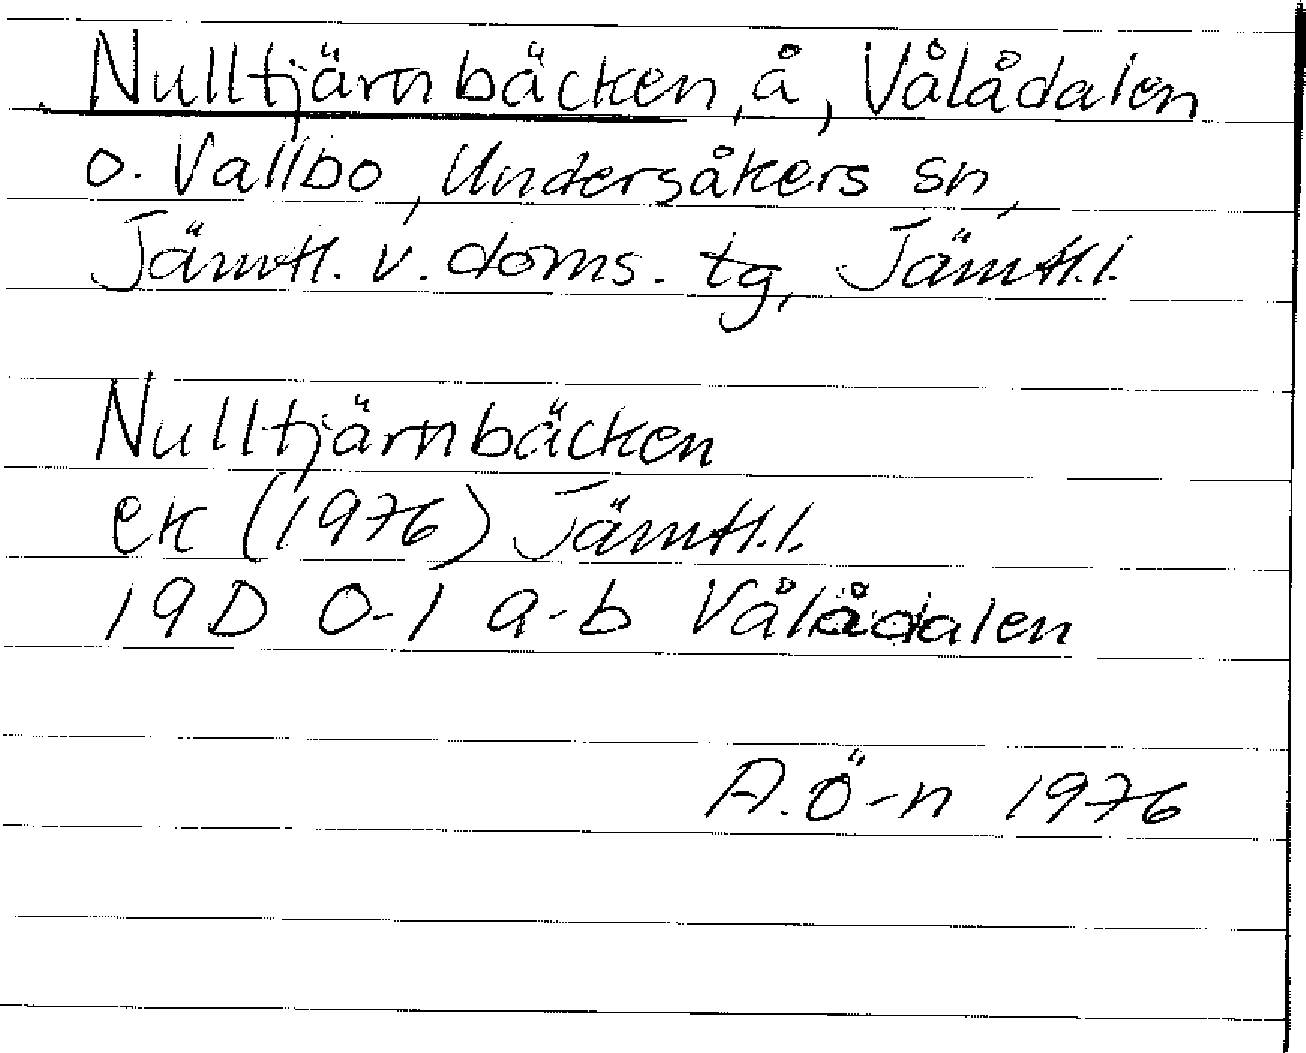 Nulltjärnbäcken, å, Vålådalen
o. Vallbo, Undersåkers sn,
Jämtl. v. doms. tg, Jämtl.l.
Nulltjärnbäcken
ek (1976) Jämtl.l.
19D 0-1 a-b Vålådalen
A.Ö-n 1976